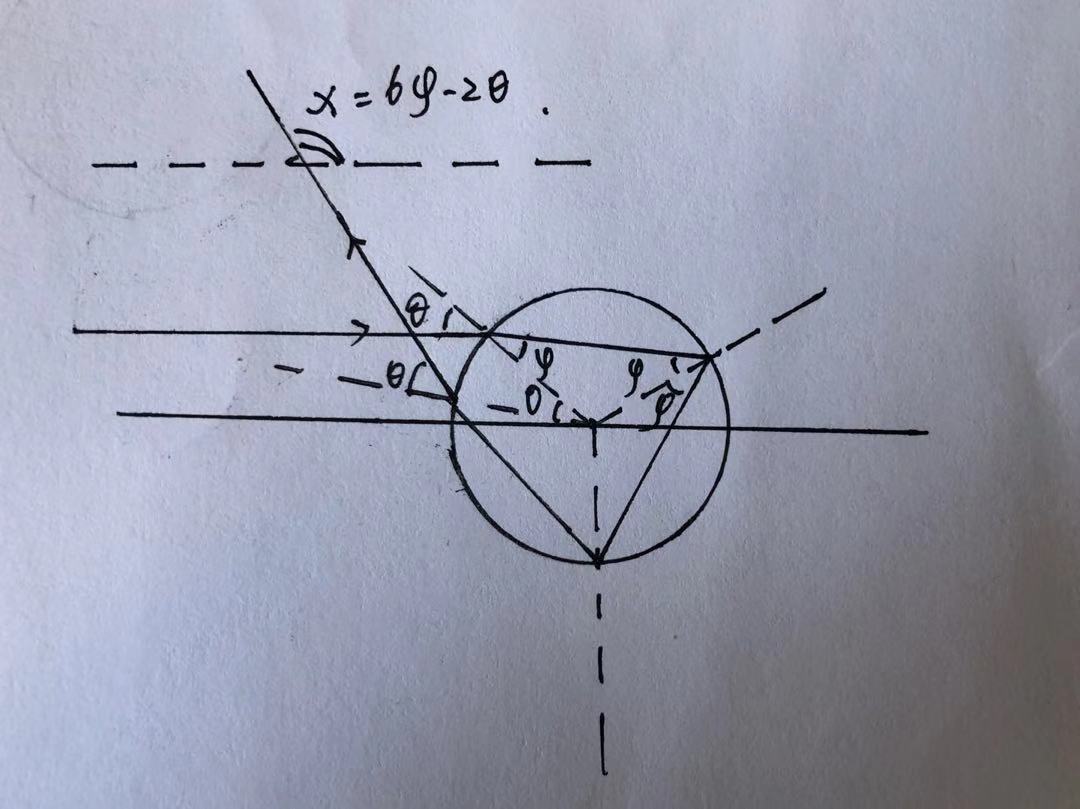 x = 6φ - 2θ .
θ
φ
φ
θ
θ
φ